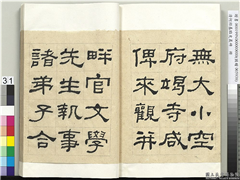 無大小空
府竭寺咸
俾來觀并
畔官文學
先生執事
諸弟子合
31